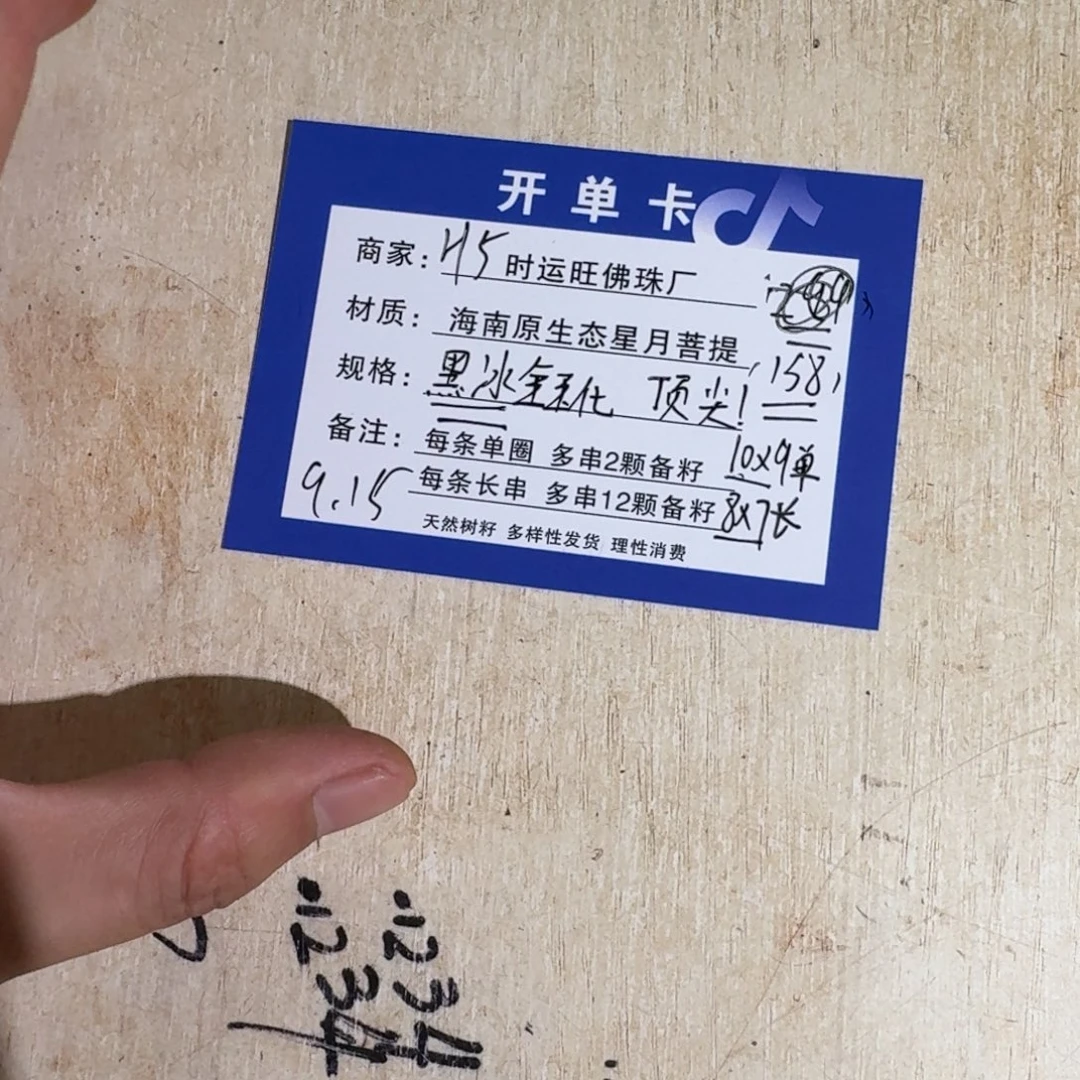 开单卡
商家: H5 时运旺佛珠厂
材质: 海南原生态星月菩提
规格: 黑冰全玉化 顶尖! (158)
备注: 每条单圈 多串2颗备籽 10x9单
9.15 每条长串 多串12颗备籽 8x7长
天然树籽 多样性发货 理性消费
1234
1234